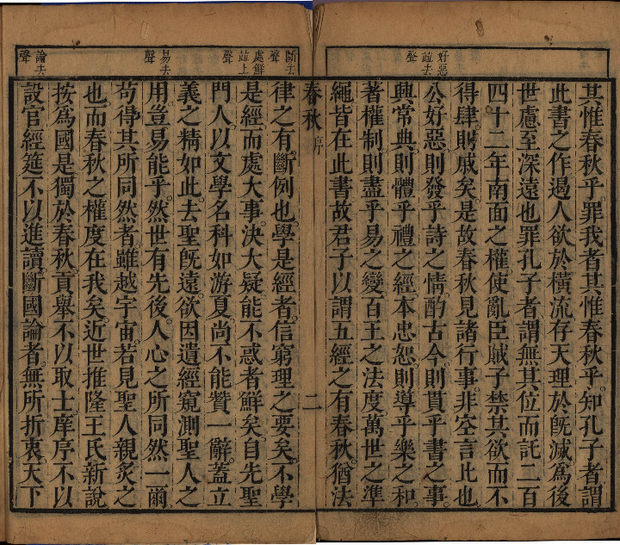 好惡
竝去
聲
其惟春秋乎罪我者其惟春秋乎知孔子者謂
此書之作遏人欲於橫流存天理於旣滅爲後
世慮至深遠也罪孔子者謂無其位而託二百
四十二年南面之權使亂臣賊子禁其欲而不
得肆則戚矣是故春秋見諸行事非空言此也
公好惡則發乎詩之情酌古今則貫乎書之事
興常典則體乎禮之經本忠恕則導乎樂之和
著權制則盡乎易之變百王之法度萬世之準
繩皆在此書故君子以謂五經之有春秋猶法
春秋序
二
斷去
聲
處鮮
竝上
聲
易去
聲
論去
聲
律之有斷例也學是經者信窮理之要矣不學
是經而處大事決大疑能不惑者鮮矣自先聖
門人以文學名科如游夏尚不能贊一辭蓋立
義之精如此去聖旣遠欲因遺經窺測聖人之
用豈易能乎然世有先後人心之所同然一爾
苟得其所同然者雖越宇宙若見聖人親炙之
也而春秋之權度在我矣近世推隆王氏新說
按爲國是獨於春秋貢舉不以取士庠序不以
設官經筵不以進讀斷國論者無所折衷天下